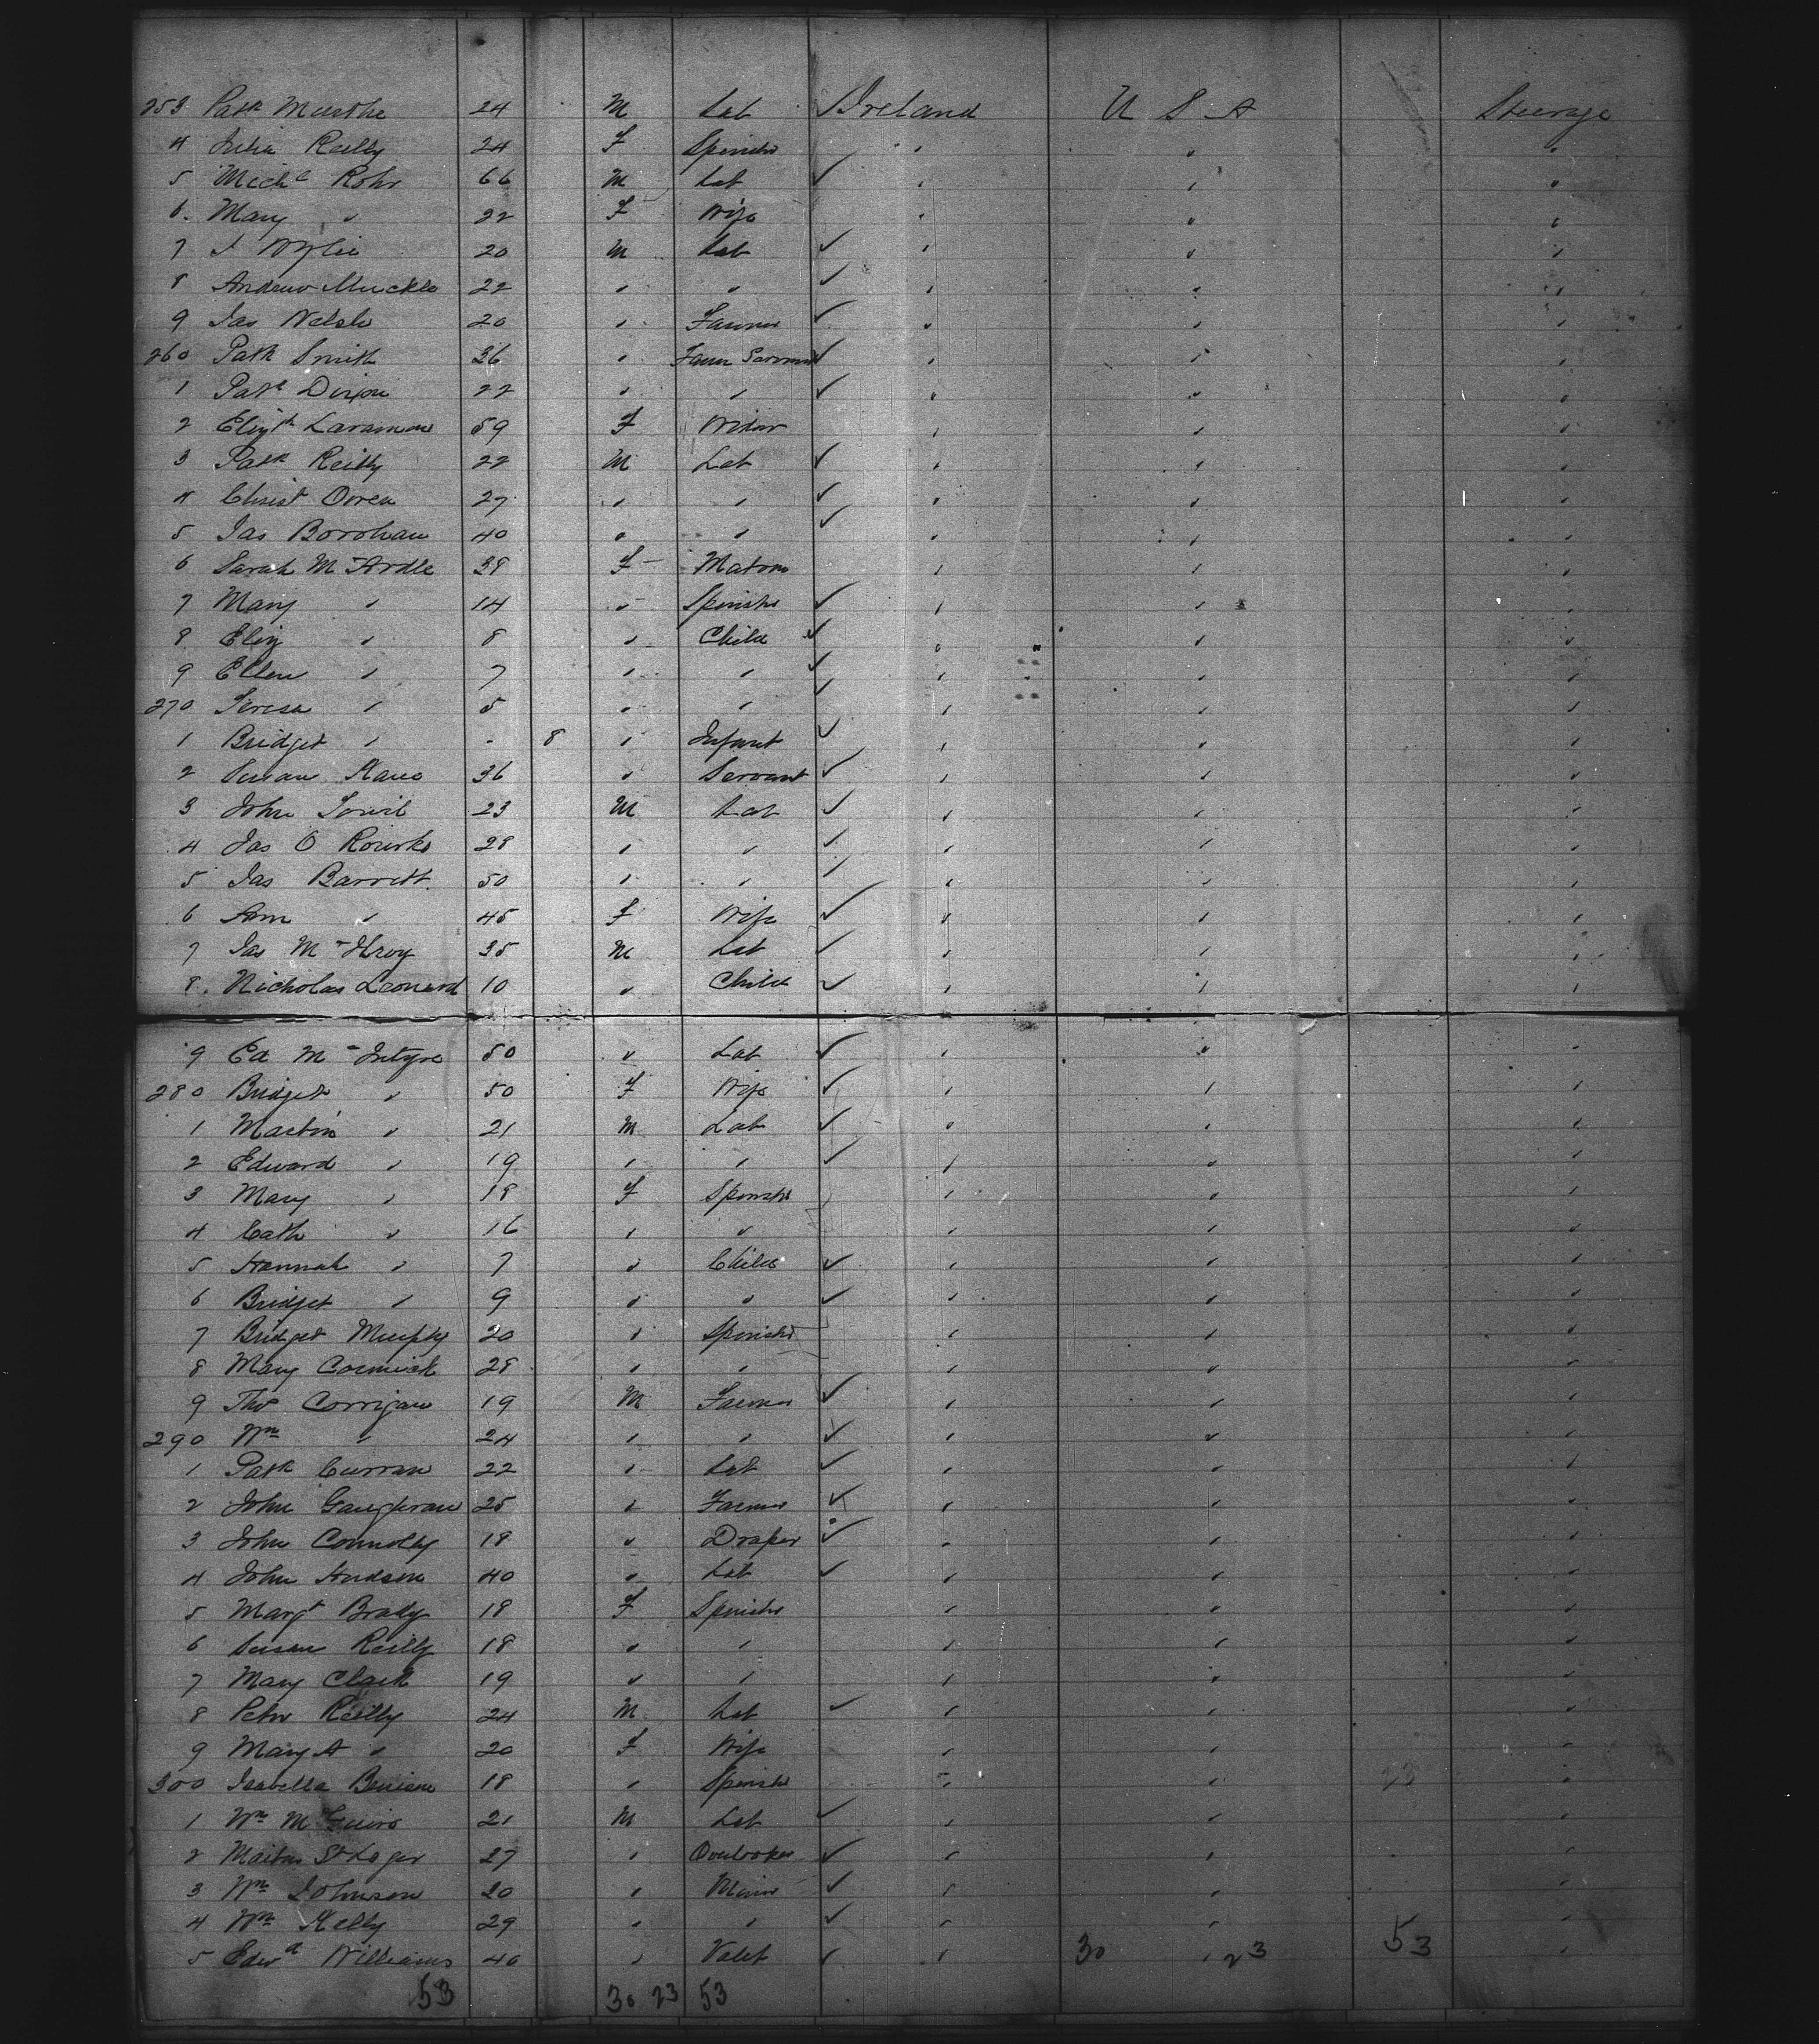 253 Patk 24 M Lab Ireland U S A Steerage
4 Julia Reilly 24 F Spinster " " "
5 Michl Rohr 66 M Lab " " "
6 Mary " 22 F Wife " " "
7 J Wylie 20 M Lab " " "
8 Andrew Muckle 22 " " " " "
9 Jas Welsh 20 " Farmer " " "
260 Patk Smith 36 " Farm Servant " " "
1 Patk Dixon 22 " " " " "
2 Elizth 59 F Widow " " "
3 Patk Reilly 22 M Lab " " "
4 Christ 27 " " " " "
5 Jas 40 " " " " "
6 Sarah McArdle 38 F Matron " " "
7 Mary " 14 " Spinster " " "
8 Eliz " 8 " Child " " "
9 Ellen " 7 " " " " "
270 Teresa " 5 " " " " "
1 Bridget " - 8 " Infant " " "
2 Susan Kane 36 " Servant " " "
3 John 23 M Lab " " "
4 Jas O Rourke 28 " " " " "
5 Jas Barrett 50 " " " " "
6 Ann " 45 F Wife " " "
7 Jas McIlroy 35 M Lab " " "
8 Nicholas Leonard 10 " Child " " "
9 Ed McIntyre 50 " Lab " " "
280 Bridget " 50 F Wife " " "
1 Martin " 21 M Lab " " "
2 Edward " 19 " " " " "
3 Mary " 18 F Spinster " " "
4 Cath " 16 " " " " "
5 Hannah " 7 " Child " " "
6 Bridget " 9 " " " " "
7 Bridget Murphy 20 " Spinster " " "
8 Mary Cormick 28 " " " " "
9 Thos Corrigan 19 M Farmer " " "
290 Wm " 24 " " " " "
1 Patk Curran 22 " Lab " " "
2 John Gaughran 25 " Farmer " " "
3 John Connolly 18 " Draper " " "
4 John Hudson 40 " Lab " " "
5 Margt Brady 18 F Spinster " " "
6 Susan Reilly 18 " " " " "
7 Mary Clark 19 " " " " "
8 Peter Reilly 24 M Lab " " "
9 Mary A " 20 F Wife " " "
300 Isabella 18 " Spinster " " "
1 Wm McGuire 21 M Lab " " "
2 St Leger 27 " " " "
3 Wm Johnson 20 " Miner " " "
4 Wm Kelly 29 " " " " "
5 Edwd Williams 40 " Valet " 30 " 23 53 "
53 30 23 53